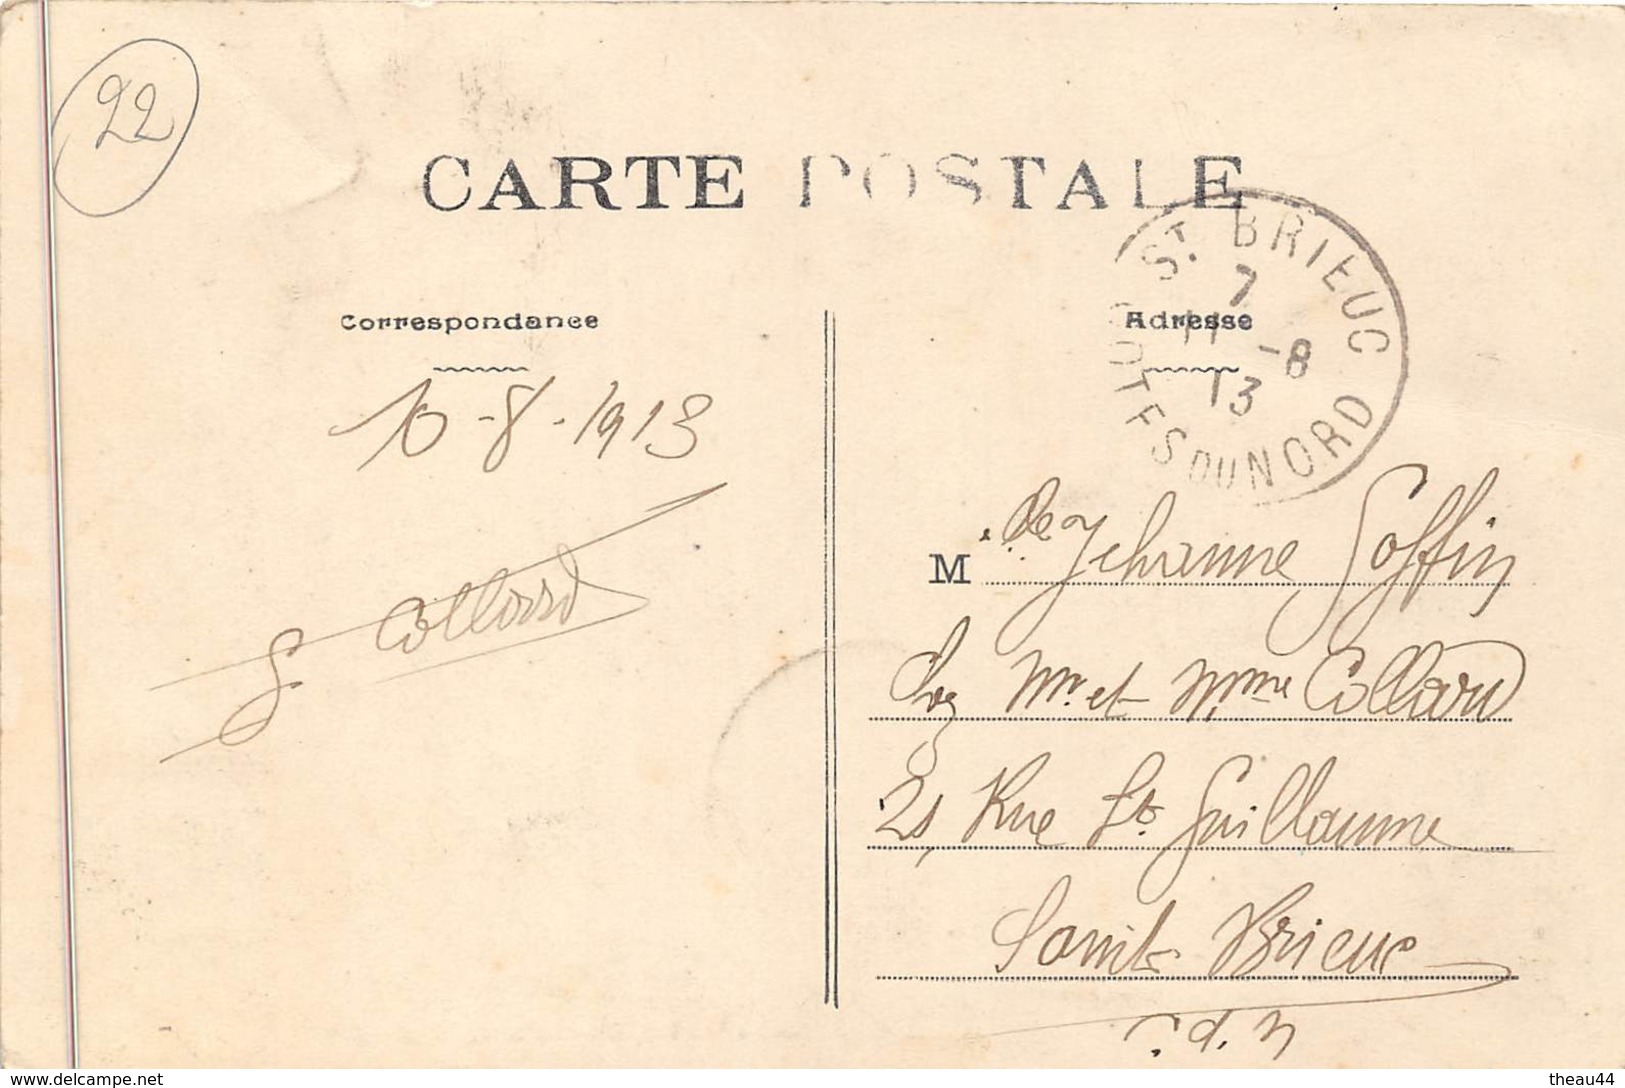 22
CARTE POSTALE
ST BRIEUC
7
11 -8
13
COTES DU NORD
Correspondance
Adresse
10-8-1913
G Collard
Melle Jehanne Goffin
Chez Mr et Mme Collard
21, Rue St Guillaume
Saint Brieuc
C. d. N
www.delcampe.net
theau44